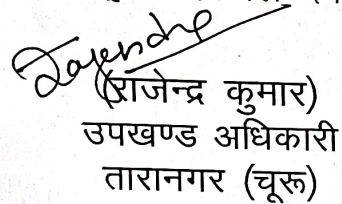 Rajendra
(राजेन्द्र कुमार)
उपखण्ड अधिकारी
तारानगर (चूरू)